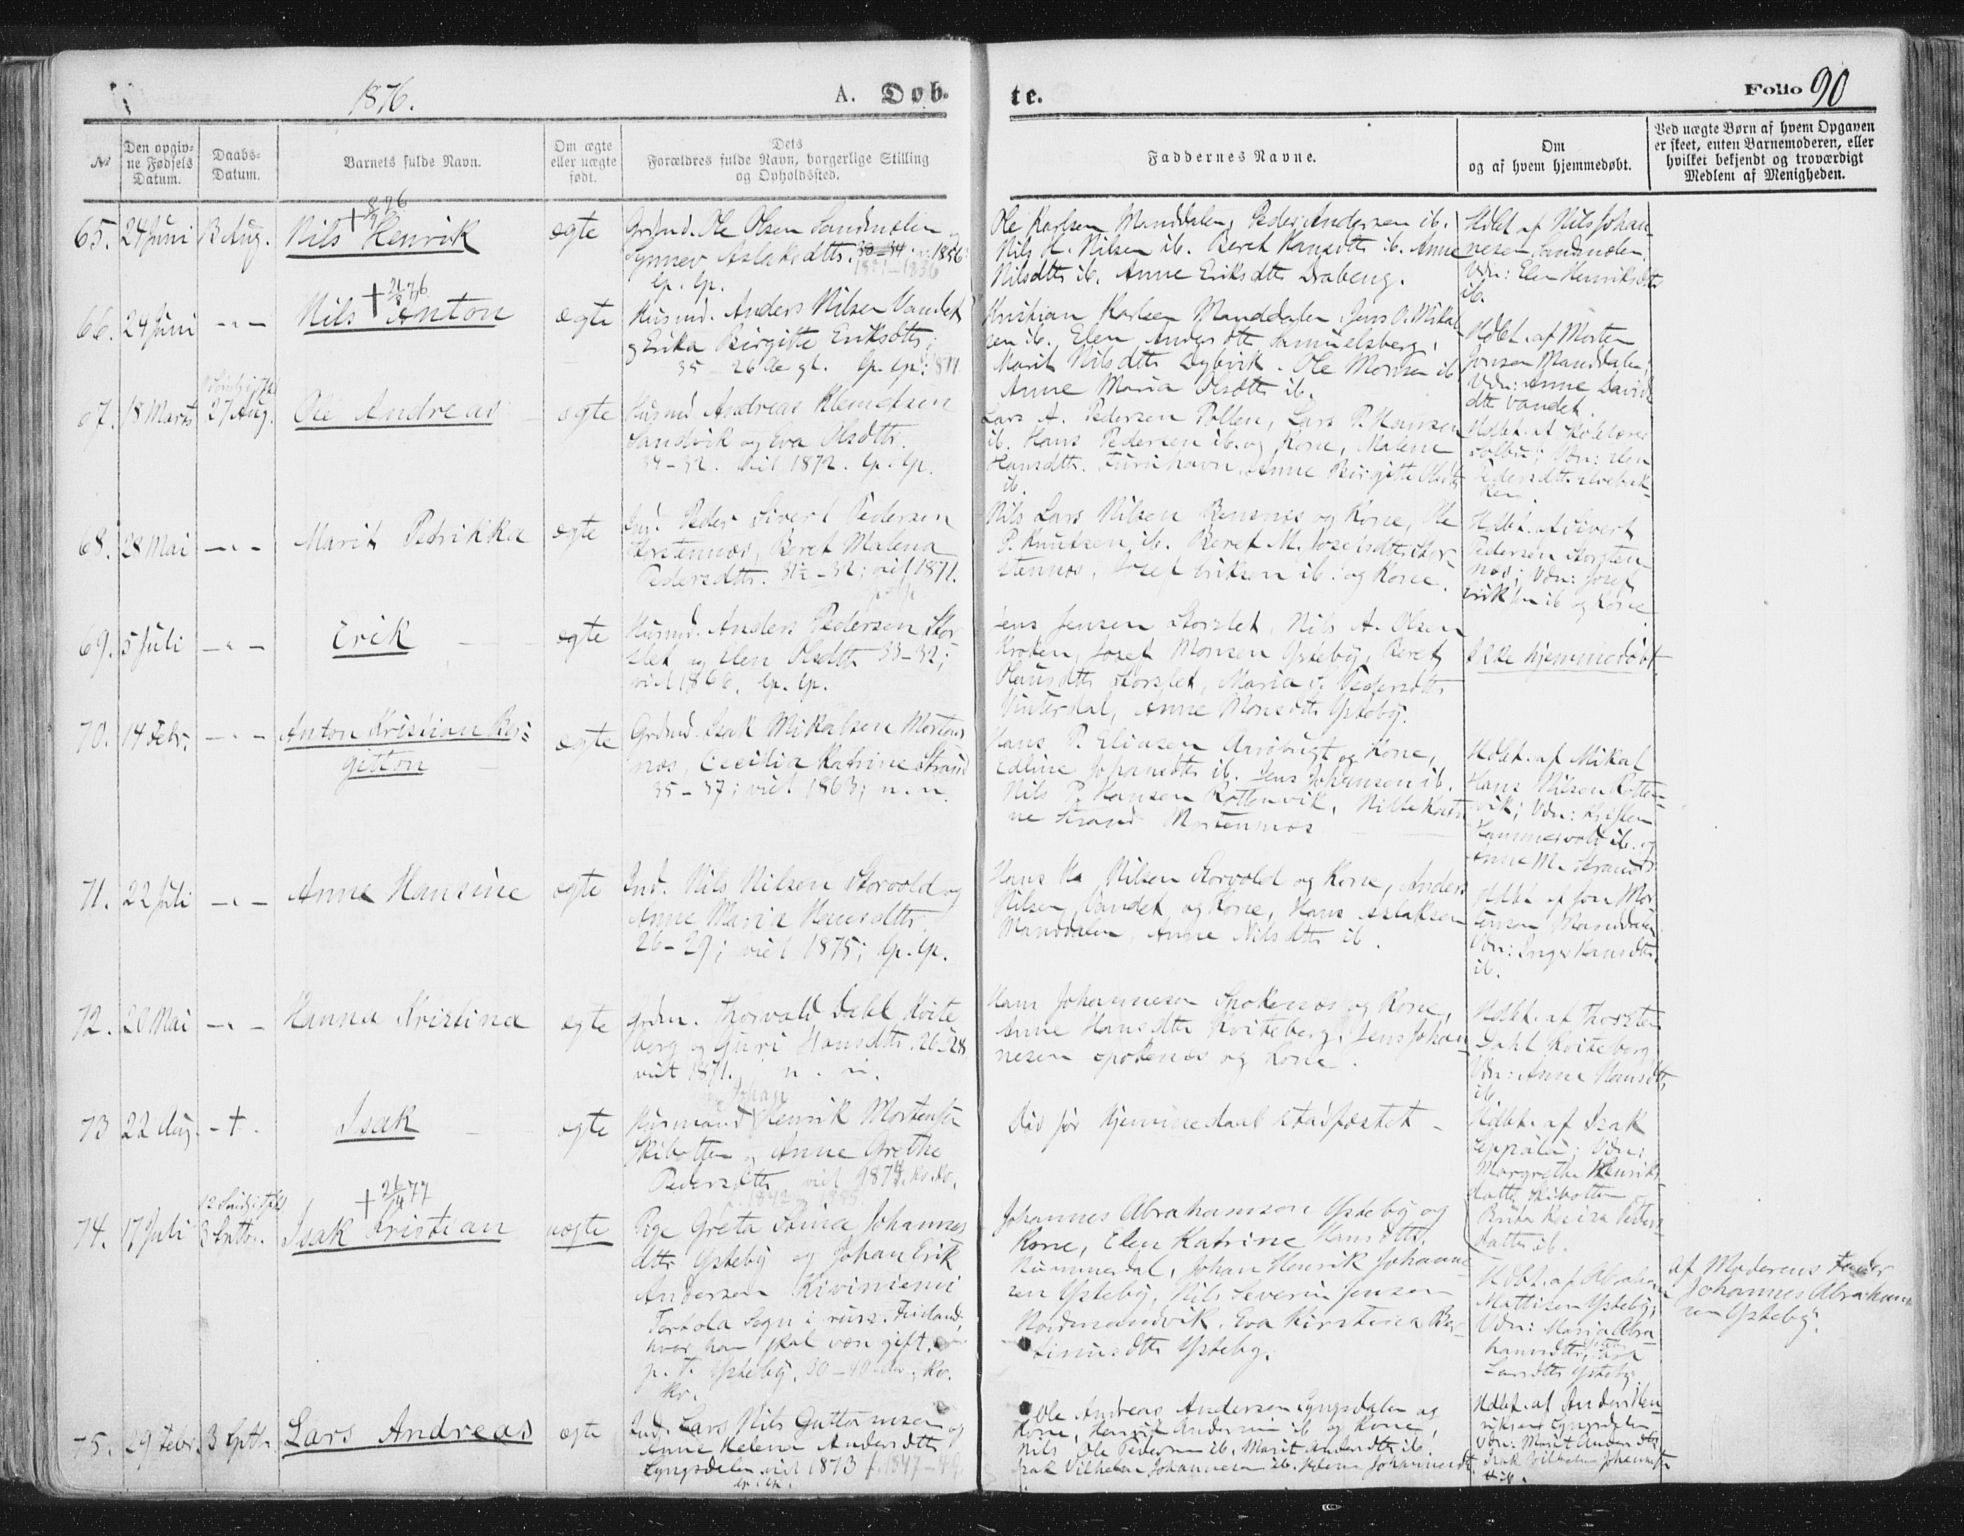 1876.
A. Døb-
te.
Folio 90
No
Den opgiv-
ne Fødsels
Datum.
Daabs-
Datum.
Barnets fulde Navn.
Om ægte
eller uægte
født.
Dets
Forældres fulde Navn, borgerlige Stilling
og Opholdssted.
Faddernes Navne.
Om
og af hvem hjemmedøbt.
Ved uægte Børn af hvem Opgaven
er skeet, enten Barnemoderen, eller
hvilket bekjendt og troværdigt
Medlem af Menigheden.
65. 24 Juni 13 Aug. Nils Henrik ægte
Grdmd. Ole Olsen Sandmælen
Synnev Aslaksdttr.
Ole Karlsen Manddalen, Peder Andersen ib.
Nils H. Nilsen ib. Beret Hansdttr ib. Anne
Nilsdttr ib. Anne Eriksdttr Drabeng.
Hdbt af Nils Johan-
nesen Sandmælen.
Vdn: Elen Henriksdttr
ib.
66. 24 Juni -"- Nils Anton ægte
Husmd. Anders Nilsen Vandet
og Erika Birgitte Eriksdttr.
Kristian Karlsen Manddalen, Jens O. Mikal-
sen ib. Elen Andersdttr Samuelsberg,
Marit Nilsdttr Dybvik. Ole Monsen ib
Anne Maria Olsdttr ib.
Hdbt. af Morten
Jonsen Manddalen;
Vdn: Anne Davids-
dttr Vandet.
67. 18 Marts 27 Aug. Ole Andreas ægte
Husmd Andreas Klemetsen
Sandvik og Eva Olsdttr.
34-32. viet 1872. lp. lp.
Lars A. Pedersen Pollen, Lars P. Hansen
ib. Hans Pedersen ib. og Kone, Malene
Hansdttr. Furuhavn. Anne Birgitte Olsdttr
ib.
68. 28 Mai -"- Marit Pedrikka ægte
Ind. Peder Sivert Pedersen
Storstennæs, Beret Malena
Pedersdttr. 31½-32; viet 1871.
Nils Lars Nilsen Bensnes og Kone, Ole
P. Knutsen ib. Beret M. Josefsdttr Stor-
stennæs, Josef Eriksen ib. og Kone.
Hdbt. af Sivert
Pedersen Storsten-
næs; Vdn: Josef
Eriksen ib og Kone
69. 5 Juli -"- Erik ægte
Husmd. Anders Pedersen Stor-
slet og Elen Olsdttr 33-32;
viet 1866. lp. lp.
Jens Jensen Storslet, Nils A. Olsen
Kroken, Josef Monsen Ysteby, Beret
Olausdttr Storslet, Maria Pedersdttr
Vinterdal, Anne Monsdttr Ysteby.
Ikke hjemmedøbt.
70. 14 Febr. -"- Anton Kristian Ber-
gitton ægte
Grdmd. Isak Mikalsen Mortens-
næs, Cecilia Katrine Strand
35-37; viet 1863; n. n.
Hans P. Elinsen Aarøbugt og Kone,
Edline Johansdttr ib. Jens Johansen ib.
Nils P. Hansen Rottenvik, Nille Katri-
ne Strand Mortennæs
Hdbt. af Mikal
Hans Nilsen Rotten-
vik; Vdn: Kristen
Hammervold ib. og
Anne M. Strand
71. 22 Juli -"- Anne Hansine ægte
Ind. Nils Nilsen Storvold og
Anne Maria Hansdttr.
26-29; viet 1875; lp. lp.
Hans Nilsen Storvold og Kone, Anders
Nilsen Vandet og Kone, Hans Aslaksen
Manddalen, Anne Nilsdttr ib.
Hdbt. af Jon Mor-
tensen Manddalen
Vdn: Inger Hansdttr
ib.
72. 20 Mai -"- Hanna Kristina ægte
Grdm. Thorvald Dahl Kvite
berg og Guri Hansdttr. 26-28
viet 1871. n. n.
Hans Johannesen Spokenæs og Kone,
Anne Hansdttr Kviteberg, Jens Johan-
nesen Spokenæs og Kone.
Hdbt. af Thorsten
Dahl Kviteberg
Vdn: Anne Hansdttr
ib.
73 22 Aug. -+- Isak ægte
Johan
Husmand Henrik Mortensen
Skibotten og Anne Grethe
Pedersdttr viet 1874. kv. kv.
Død før Hjemmedaab stadfæstet -
Hdbt. af Isak
Seppala; Vdn:
Margrethe Henriks-
datter Skibotten og
Brita Kaisa Peders-
datter ib.
74. 17 Juli 3 Septbr. Isak Kristian uægte
Pige Greta Stina Johannes
dttr Ysteby og Johan Erik
Andersen Kiviniemi
Tortola Sogn i russ. Finland,
hvor han skal være gift.
p. t. Ysteby. 30-40 Aar, kv.
kv.
Johannes Abrahamsen Ysteby og
Kone, Elen Katrine Hansdttr,
Nummedal, Johan Henrik Johanne-
sen Ysteby, Nils Severin Jensen
Nordmandvik, Eva Kirstina Be-
dttr Ysteby.
Hdbt. af Abraham
Mattisen Ysteby;
Vdn: Maria Abra-
hamsdttr
Larsdttr Ysteby
af Moderens Fader
Johannes Abraham-
sen Ysteby.
75. 29 Febr. 3 Septbr. Lars Andreas ægte
Ind. Lars Nils Guttormsen og
Anne Helena Andersdttr
Lyngsdalen viet 1873 f. 1847-49.
Ole Andreas Andersen Lyngsdalen og
Kone, Henrik Andersen ib og Kone,
Nils Ole Pedersen ib. Marit Andersdttr ib.
Isak Vilhelm Johannesen ib. Helene Johannesdtr
Hdbt. af Anders Hen-
riksen Lyngsdalen
Vdn: Marit Andersdttr,
Isak Vilhelm Johannesen
ib.